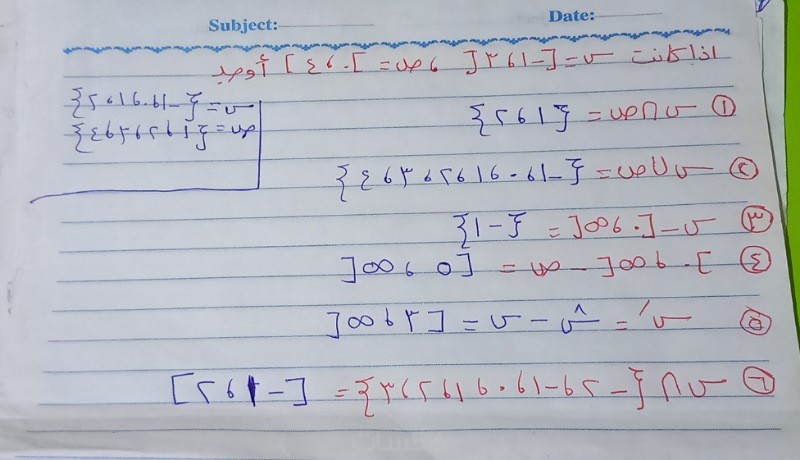 Subject: Date:
اذا كانت س = [-١ ، ٣[ ، ص = ]٠ ، ٤] أوجد
س = {-١ ، ٠ ، ١ ، ٢}
ص = {١ ، ٢ ، ٣ ، ٤}
① س ∩ ص = {١ ، ٢}
② س ∪ ص = {-١ ، ٠ ، ١ ، ٢ ، ٣ ، ٤}
③ س - [٠ ، ∞[ = {-١}
④ ]٠ ، ∞[ - ص = [٥ ، ∞[
⑤ س′ = ش - س = [٣ ، ∞[
⑥ س ∩ {-٢ ، -١ ، ٠ ، ١ ، ٢ ، ٣} = [-١ ، ٢]